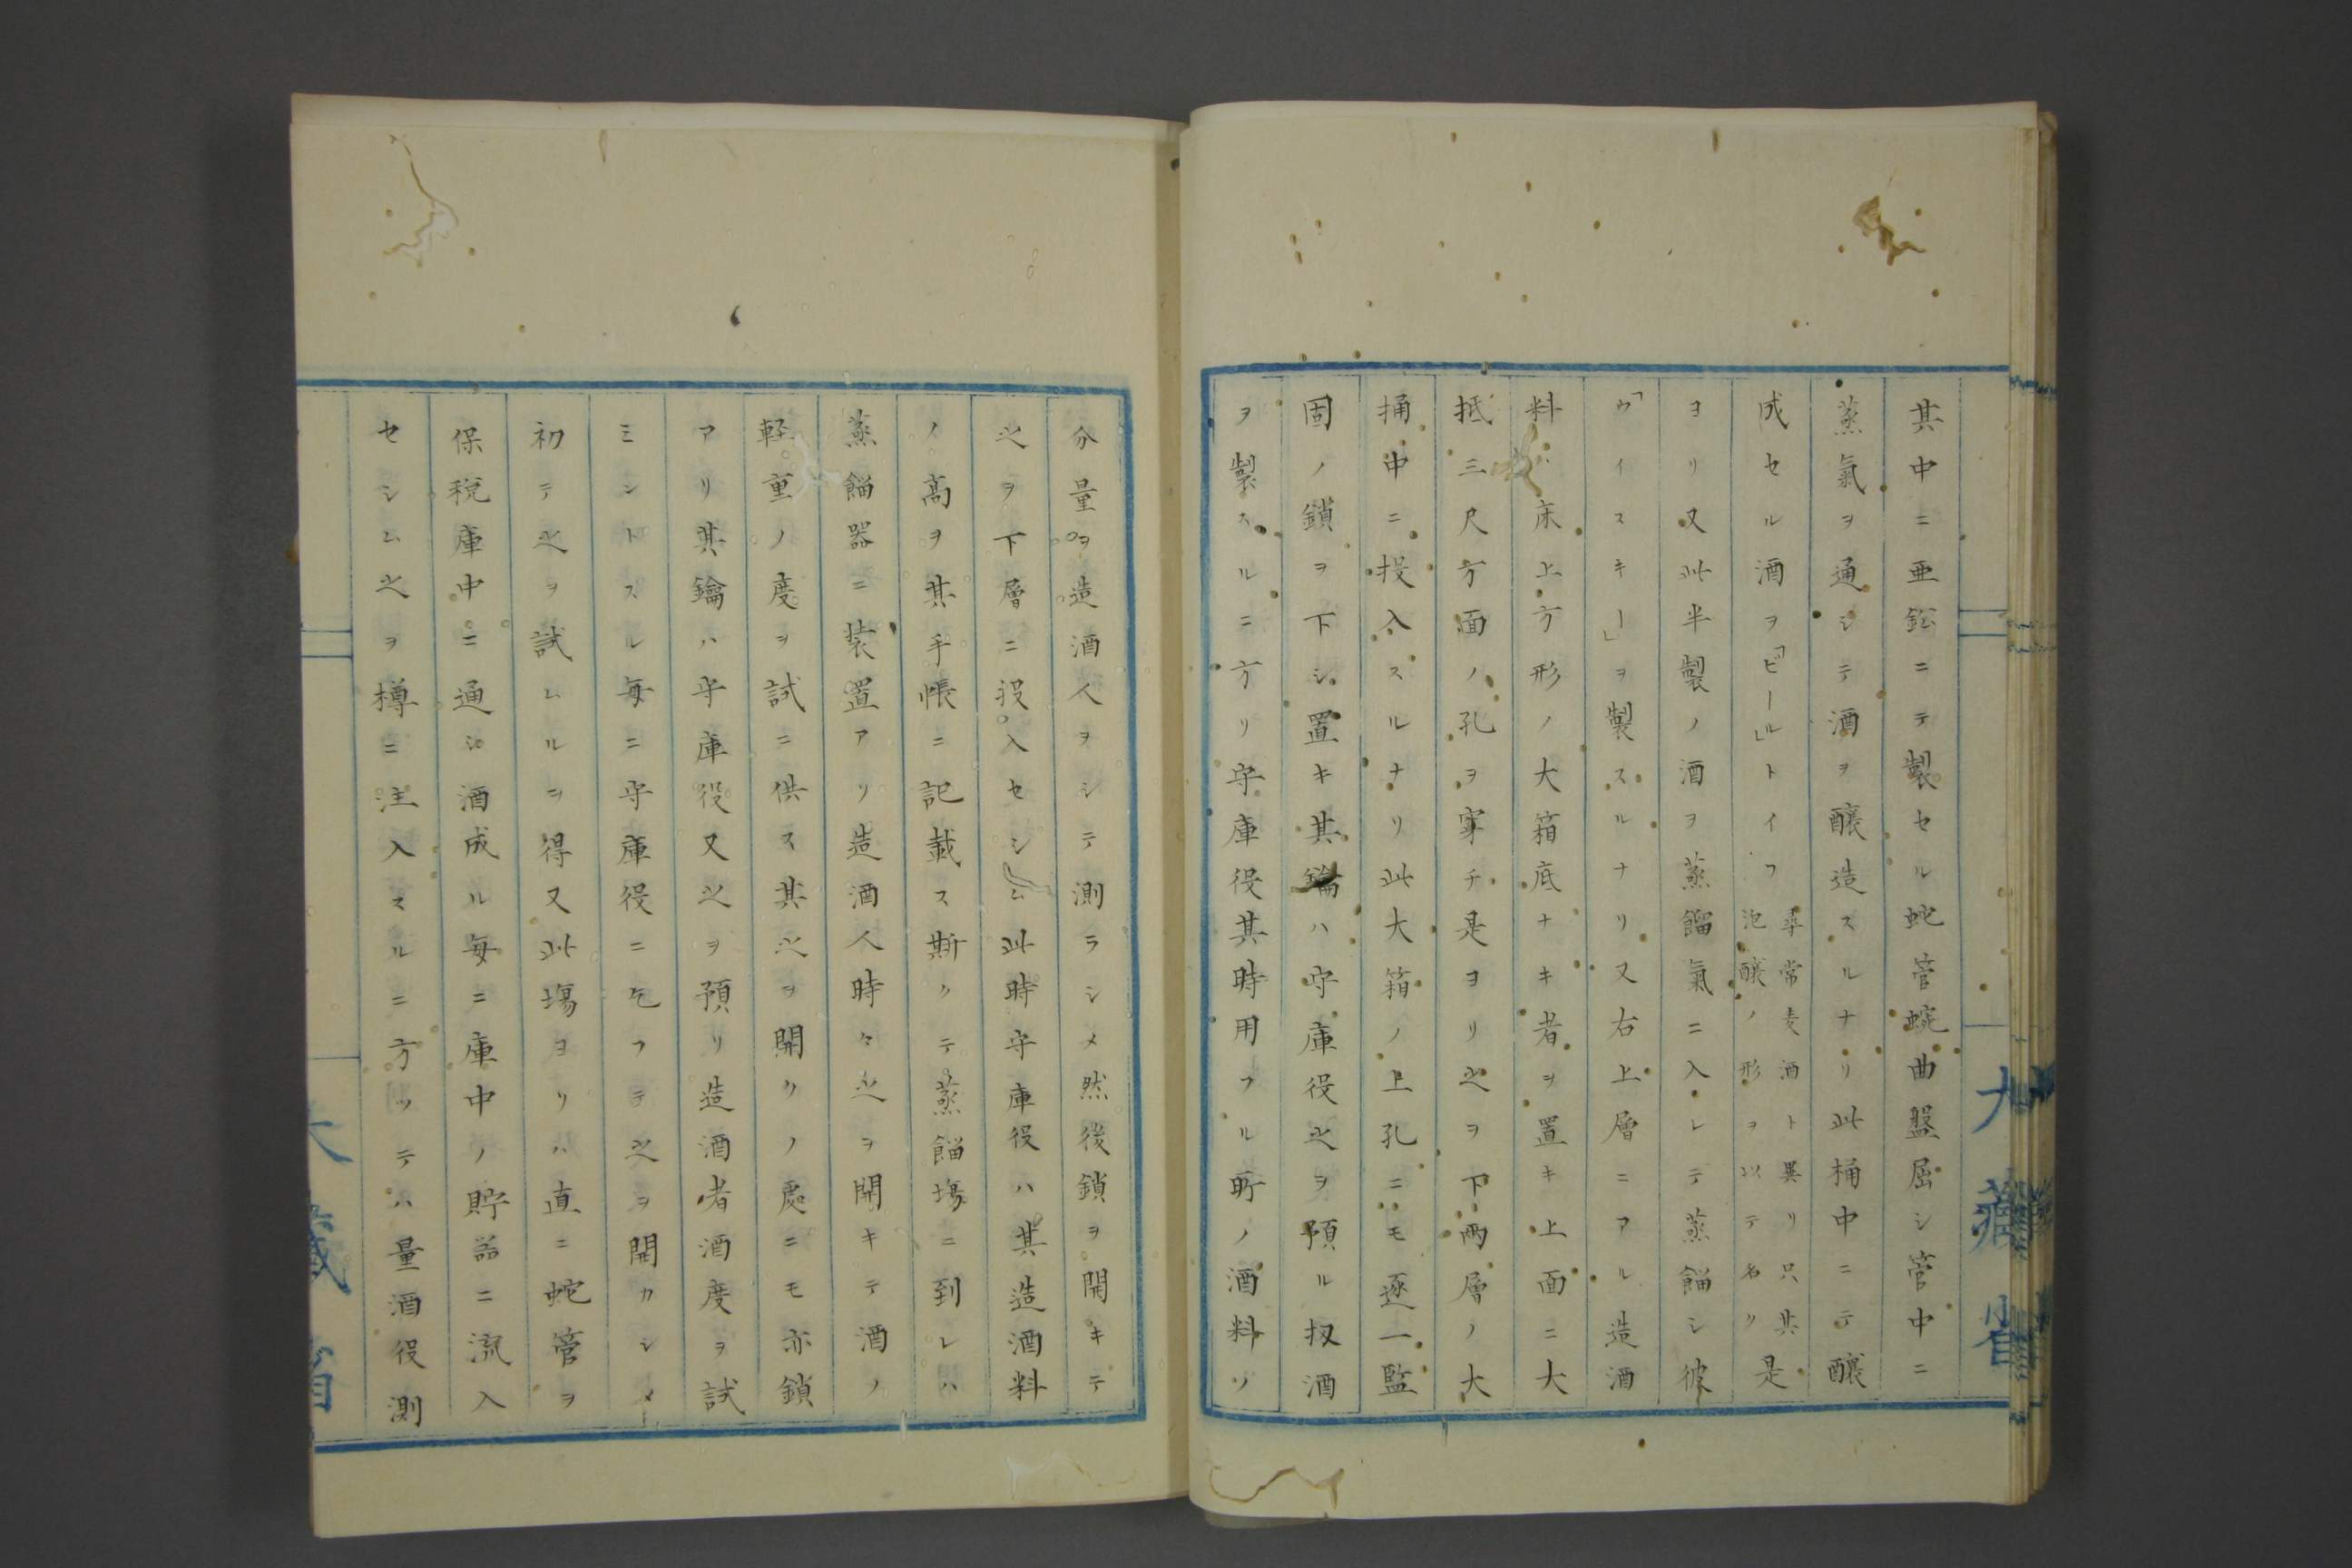 其中ニ亜鉛ニテ製セル蛇管蜿曲盤屈シ管中ニ
蒸氣ヲ通シテ酒ヲ醸造スルナリ此桶中ニテ醸
成セル酒ヲ「ビール」トイフ尋常麦酒ト異リ只其泡醸ノ形ヲ以テ名ク是
ヨリ又此半製ノ酒ヲ蒸餾氣ニ入レテ蒸餾シ彼
「ウイスキー」ヲ製スルナリ又右上層ニアル造酒
料ハ床上方形ノ大箱底ナキ者ヲ置キ上面ニ大
抵三尺方面ノ孔ヲ穿チ是ヨリ之ヲ下両層ノ大
桶中ニ投入スルナリ此大箱ノ上孔ニモ逐一監
固ノ鎖ヲ下シ置キ其鑰ハ守庫役之ヲ預ル扨酒
ヲ製スルニ方リ守庫役其時用フル所ノ酒料ノ
分量ヲ造酒人ヲシテ測ラシメ然後鎖ヲ開キテ
之ヲ下層ニ投入セシム此時守庫役ハ其造酒料
ノ高ヲ其手帳ニ記載ス斯クテ蒸餾場ニ到レハ
蒸餾器ニ装置アリ造酒人時々之ヲ開キテ酒ノ
軽重ノ度ヲ試ニ供ス其之ヲ開クノ處ニモ亦鎖
アリ其鑰ハ守庫役又之ヲ預リ造酒者酒度ヲ試
ミントスル毎ニ守庫役ニ乞フテ之ヲ開カシメ
初テ之ヲ試ムルヲ得又此場ヨリハ直ニ蛇管ヲ
保税庫中ニ通シ酒成ル毎ニ庫中ノ貯器ニ流入
セシム之ヲ樽ニ注入スルニ方ツテハ量酒役測
大藏省
大藏省